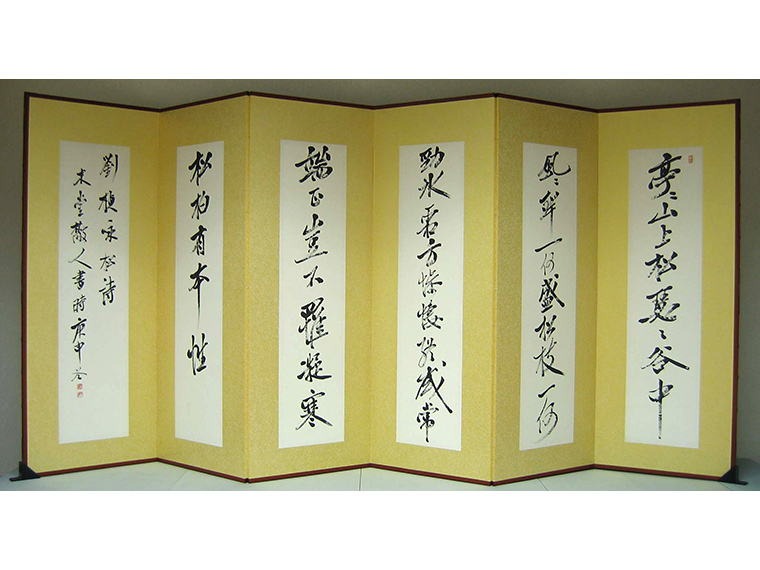 亭〻山上松瑟〻谷中
風〻聲一何盛松枝一何
勁冰霜方惨悽終歳常
端正豈不罹凝寒
松柏有本性
劉楨詠松詩
木堂散人書時庚申